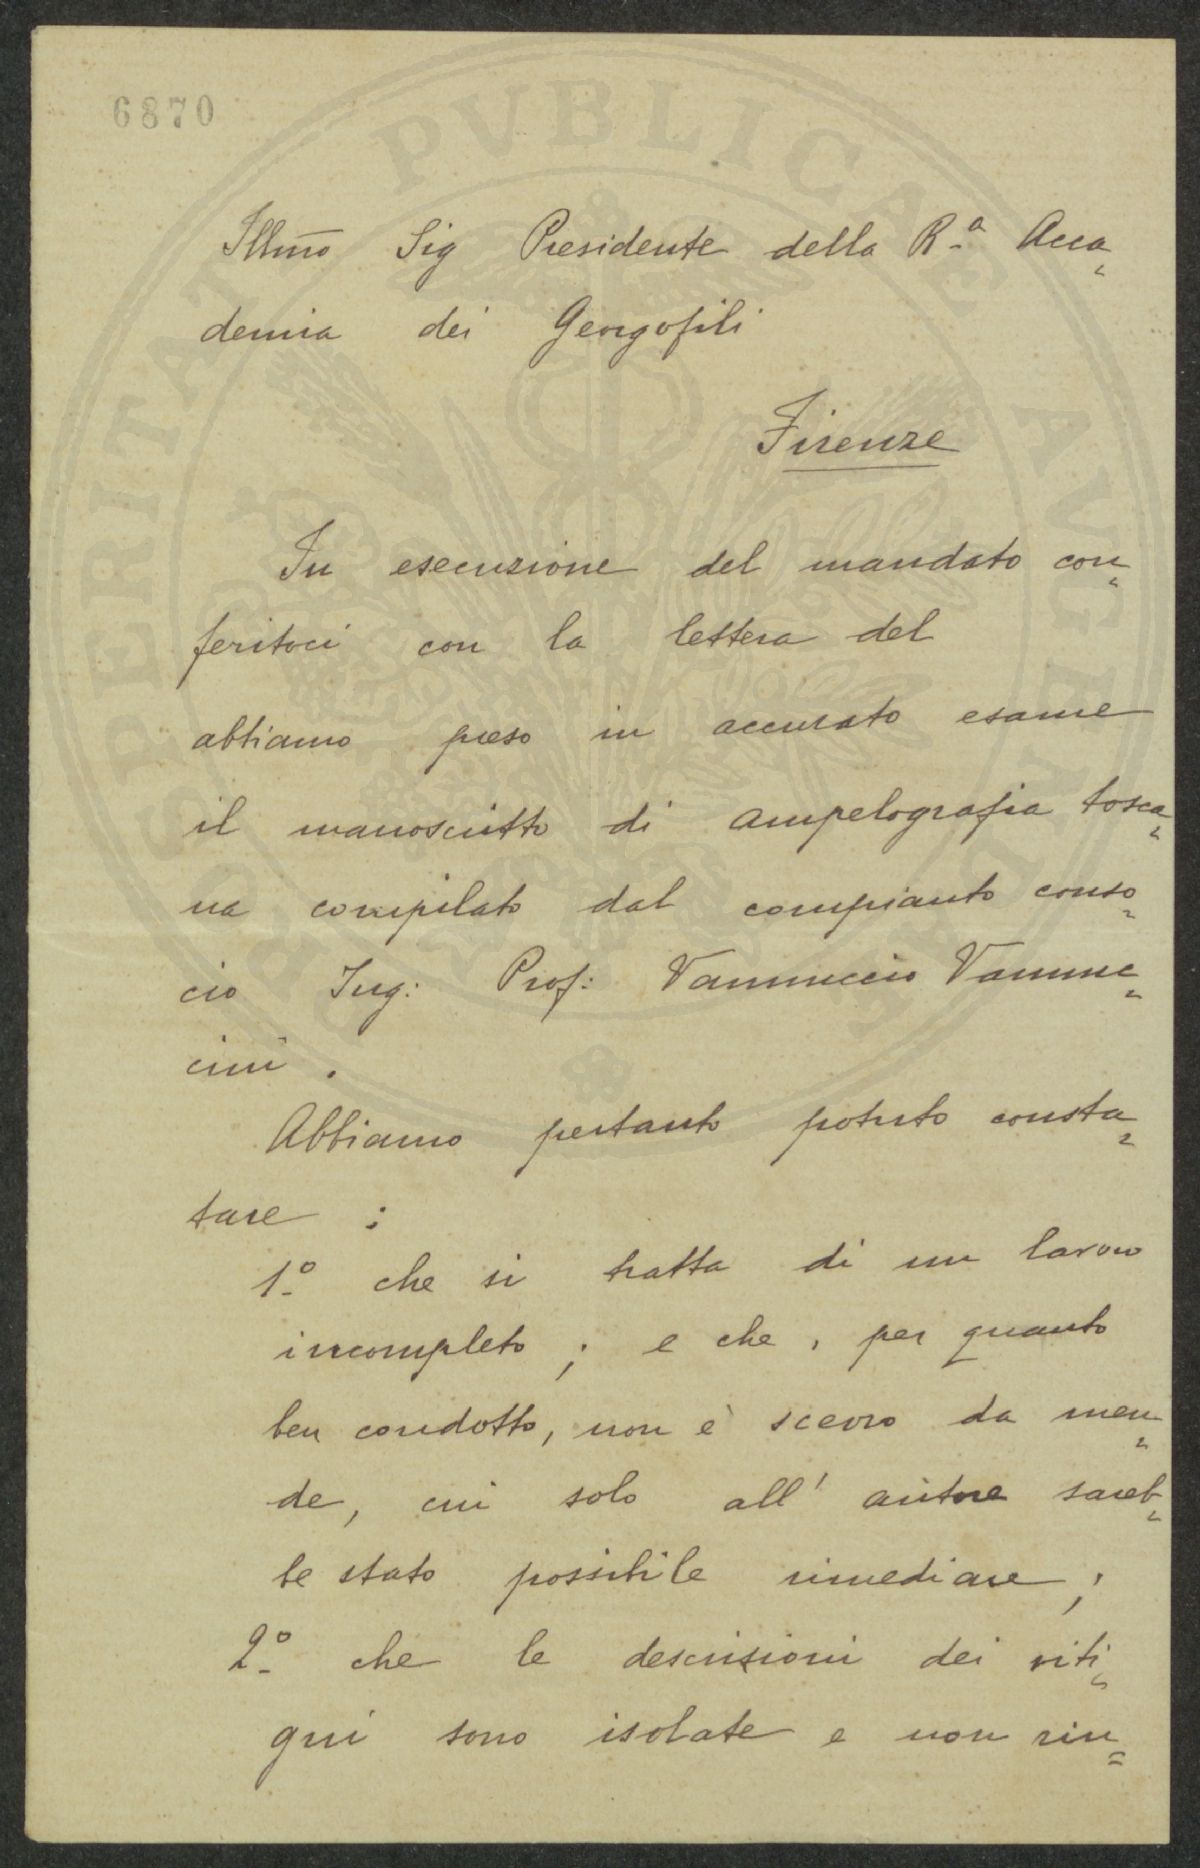 6870
PROSPERITATI PVBLICAE AVGENDAE
Illm̅o Sig Presidente della R.ª Acca-
demia dei Georgofili
Firenze
In esecuzione del mandato con-
feritoci con la lettera del
abbiamo preso in accurato esame
il manoscritto di ampelografia tosca-
na compilato dal compianto conso-
cio Ing: Prof: Vannuccio Vannuc-
cini.
Abbiamo pertanto potuto consta-
tare :
1.º che si tratta di un lavoro
incompleto ; e che, per quanto
ben condotto, non è scevro da men-
de, cui solo all' autore sareb-
be stato possibile rimediare ;
2.º che le descrizioni dei viti-
gni sono isolate e non riu=